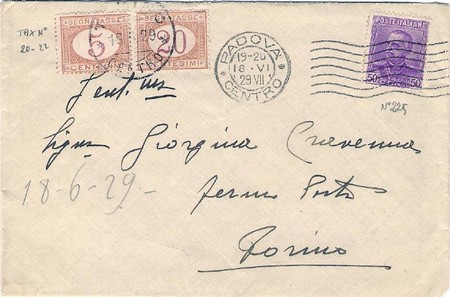 TAX N°
20-22
SEGNATASSE
5
CENTESIMI
SEGNATASSE
20
CENTESIMI
PADOVA
19-20
18·VI
29 VII
CENTRO
POSTE ITALIANE
50 50
N° 225
Gent.ma
Sigra Giorgina Cravenna
18-6-29-
fermo Posta
Torino